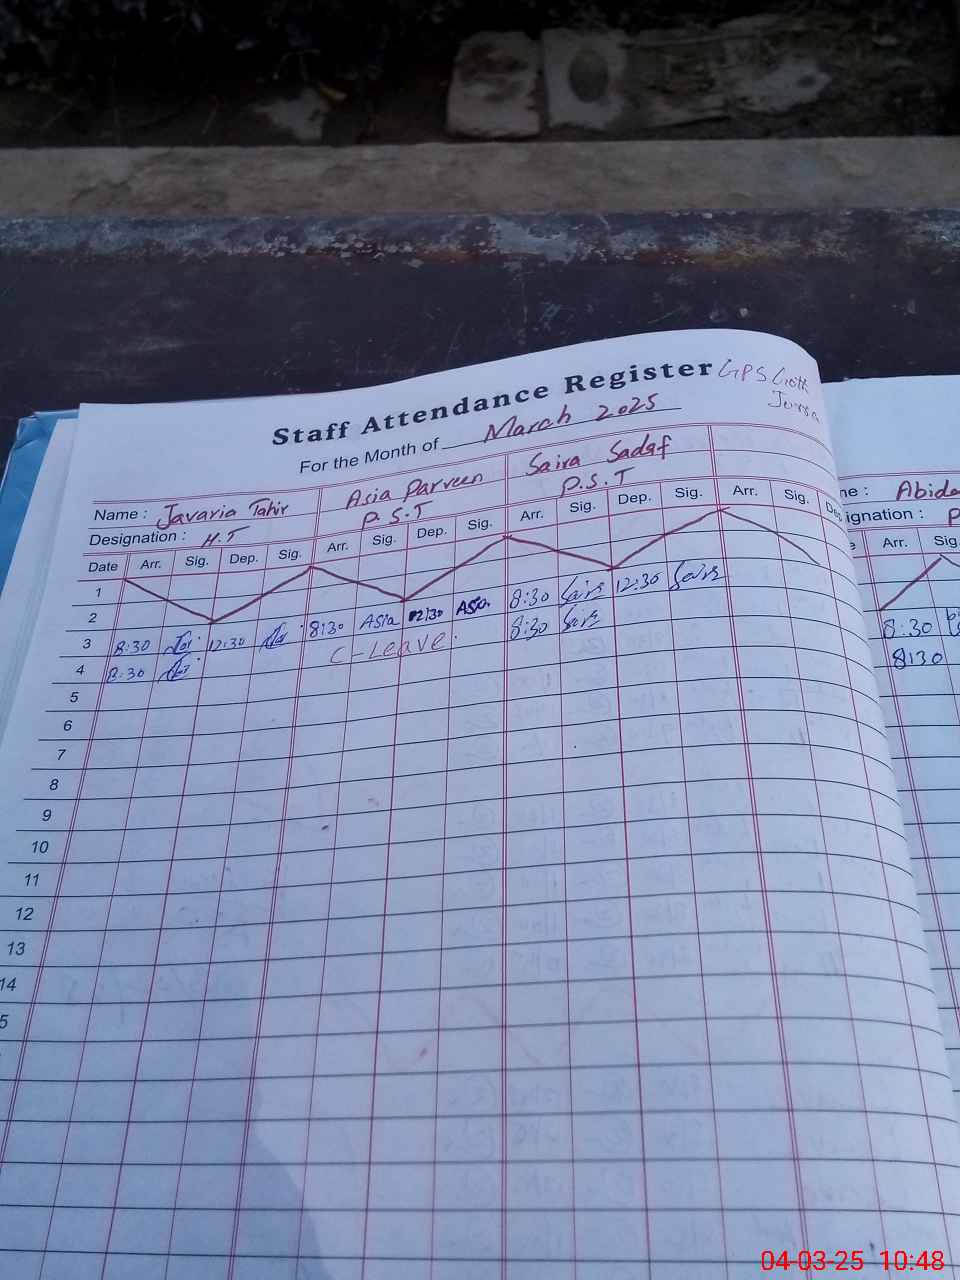 Staff Attendance Register GPS Goth
For the Month of March 2025
Name : Javaria Tahir Asia Parveen Saira Sadaf
Designation : H.T P.S.T P.S.T
Date Arr. Sig. Dep. Sig. Arr. Sig. Dep. Sig. Arr. Sig. Dep. Sig. Arr. Sig.
1
2
3 8:30 12:30 8:30 Asia 12:30 Asia 8:30 12:30
4 8:30 C-Leave. 8:30
5
6
7
8
9
10
11
12
13
14
5
me : Abida
ignation : P
Arr. Sig
8:30
8:30
04-03-25 10:48